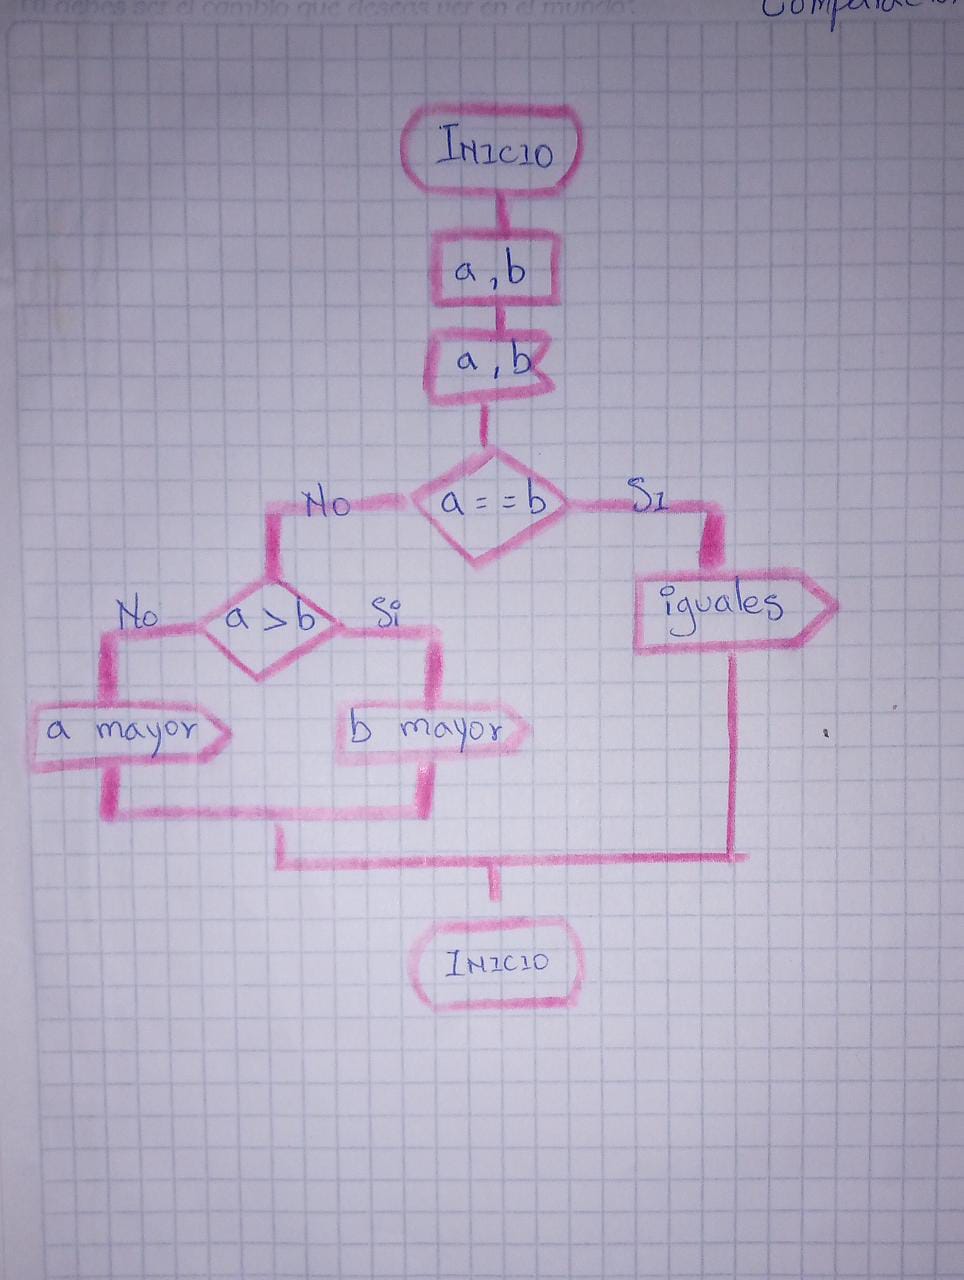 Tú debes ser el cambio que deseas ver en el mundo.
INICIO
a, b
a, b
No
a == b
SI
No
a > b
Si
iguales
a mayor
b mayor
INICIO